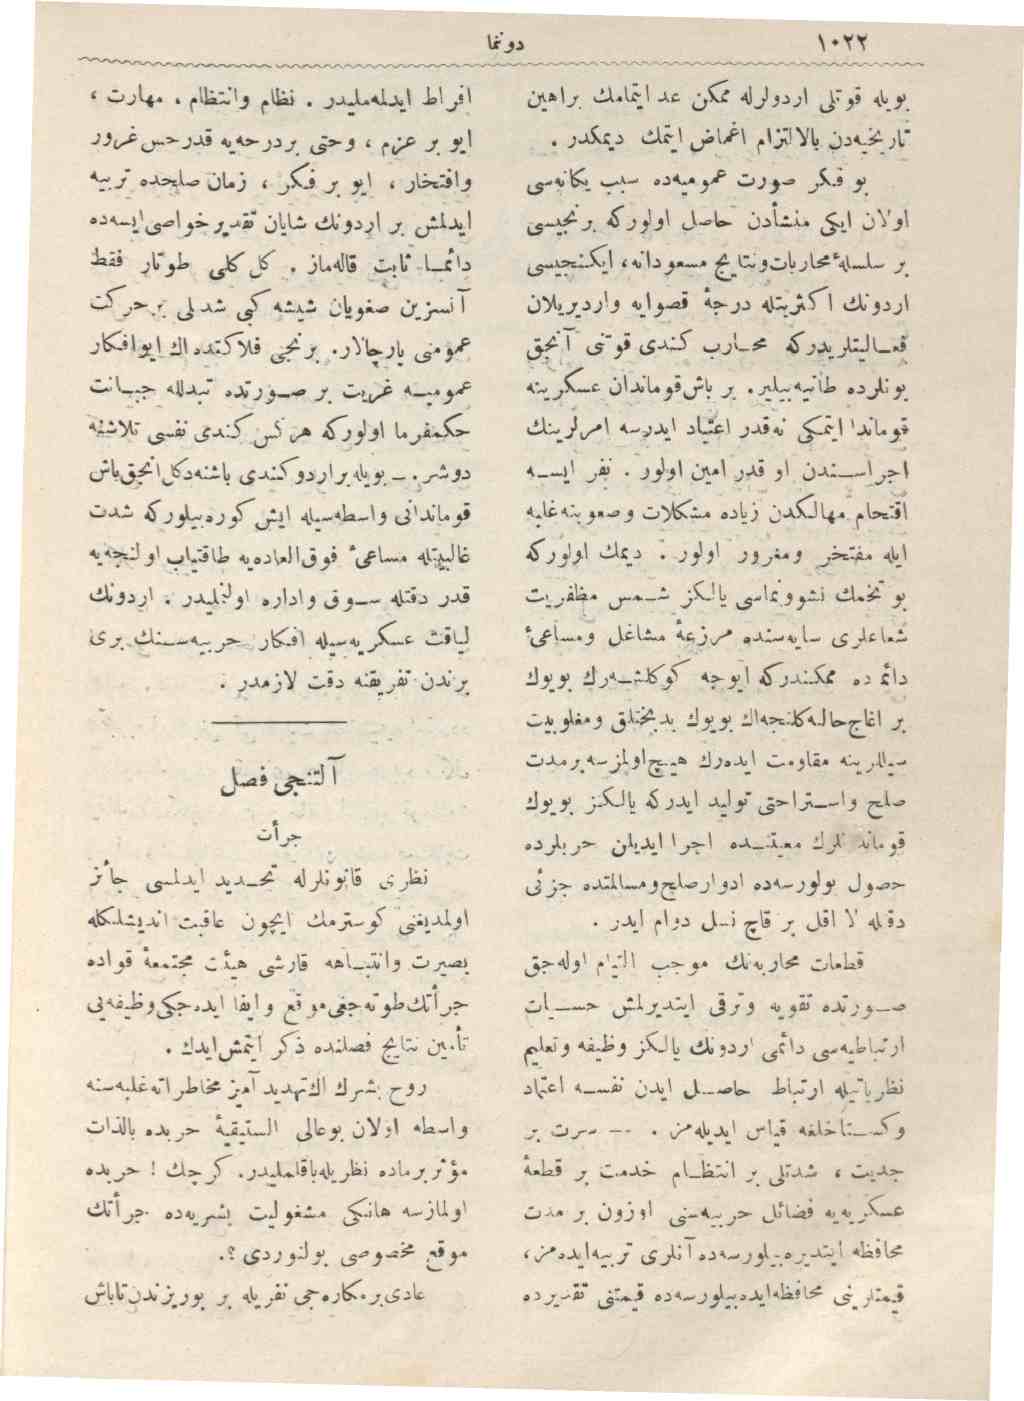 ١٠٢٢
دوننما
بویله قوتلی اردولرله ممکن عد ایتمامك براهین
تاریخیه‌دن بالالتزام اغماض ایتمك دیمکدر .
بو فکر صورت عمومیه‌ده سبب یکانه‌سی
اولان ایکی منشأدن حاصل اولورکه برنجیسی
بر سلسلهٔ محاربات ونتایج مسعودانه، ایکنجیسی
اردونك اکثریتله درجهٔ قصوایه واردیریلان
فعالیتلریدرکه محارب کندی قوتنی آنجق
بونلرده طانیه‌بیلیر. بر باش قوماندان عسکرینه
قوماندا ایتمکی نه‌قدر اعتیاد ایدرسه امرلرینك
اجراسندن او قدر امین اولور . نفر ایسه
اقتحام مهالکدن زیاده مشکلات وصعوبته غلبه
ایله مفتخر ومغرور اولور . دیمك اولورکه
بو تخمك نشوونماسی یالکز شمس مظفریت
شعاعلری سایه‌سنده مزرعهٔ مشاغل ومساعیٔ
دائمه‌ده ممکندرکه ایوجه کوکلشه‌رك بویوك
بر اغاج حالنه کلنجه اك بویوك بدبختلق ومغلوبیت
سیللرینه مقاومت ایده‌رك هیچ اولمزسه برمدت
صلح واستراحتی تولید ایدرکه یالکز بویوك
قوماندانلرك معیتنده اجرا ایدیلن حربلرده
حصول بولورسه‌ده ادوار صلح ومسالمتده جزئی
دقتله لا اقل بر قاچ نسل دوام ایدر .
قطعات محاربه‌نك موجب التیام اوله‌جق
صورتده تقویه وترقی ایتدیرلمش حسیات
ارتباطیه‌سی دائمی اردونك یالکز وظیفه وتعلیم
نظریاتیله ارتباط حاصل ایدن نفسه اعتماد
وکستاخلغه قیاس ایدیله‌مز . — سرت بر
جدیت ، شدتلی بر انتظام خدمت بر قطعهٔ
عسکریه‌یه فضائل حربیه‌سنی اوزون بر مدت
محافظه ایتدیره‌بیلورسه‌ده آنلری تربیه ایده‌مز،
قیمتلرینی محافظه ایده‌بیلورسه‌ده قیمتنی تقدیرده
افراط ایدلمه‌ملیدر . نظام وانتظام ، مهارت ،
ایو بر عزم ، وحتی بر درجه‌یه قدر حس غرور
وافتخار ، ایو بر فکر ، زمان صلحده تربیه
ایدلمش بر اردونك شایان تقدیر خواصی ایسه‌ده
دائما ثابت قاله‌ماز . کل کلی طوتار فقط
آنسزین صغویان شیشه کبی شدتلی بر حرکت
عمومنی پارچالار. برنجی فلاکتده اك ایو افکار
عمومیه غریب بر صورتده تبدلله جبانت
حکمفرما اولورکه هرکس کندی نفسی تلاشنه
دوشر. — بویله بر اردو کندی باشنه دکل انجق باش
قوماندانی واسطه‌سیله ایش کوره‌بیلورکه شدت
غالبیتله مساعیٔ فوق‌العاده‌یه طاقتیاب اولنجه‌یه
قدر دقتله سوق واداره اولنملیدر . اردونك
لیاقت عسکریه‌سیله افکار حربیه‌سنك بری
برندن تفریقنه دقت لازمدر .
آلتنجی فصل
جرأت
نظری قانونلرله تحدید ایدلمسی جائز
اولمدیغنی کوسترمك ایچون عاقبت اندیشلکله
بصیرت وانتباهه قارشی هیئت مجتمعهٔ قواده
جرأتك طوته‌جغی موقع و ایفا ایده‌جکی وظیفه‌یی
تأمین نتایج فصلنده ذکر ایتمش ایدك .
روح بشرك اك تهدید آمیز مخاطراته غلبه‌سنه
واسطه اولان بوعالی الستیقیهٔ حربده بالذات
مؤثر برماده نظریله باقلملیدر. کرچك ! حربده
اولمازسه هانکی مشغولیت بشریه‌ده جرأتك
موقع مخصوصی بولنوردی ؟.
عادی برمکاره‌جی نفریله بر بوریزندن تاباش